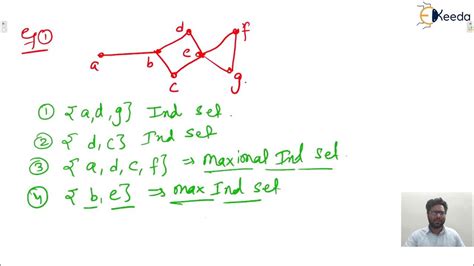 Ekeeda
eg ①
a b c d e f g
① {a,d,g} Ind set.
② { d,c} Ind set
③ { a, d, c, f} ⇒ maxional Ind set.
④ { b, e} ⇒ max Ind set